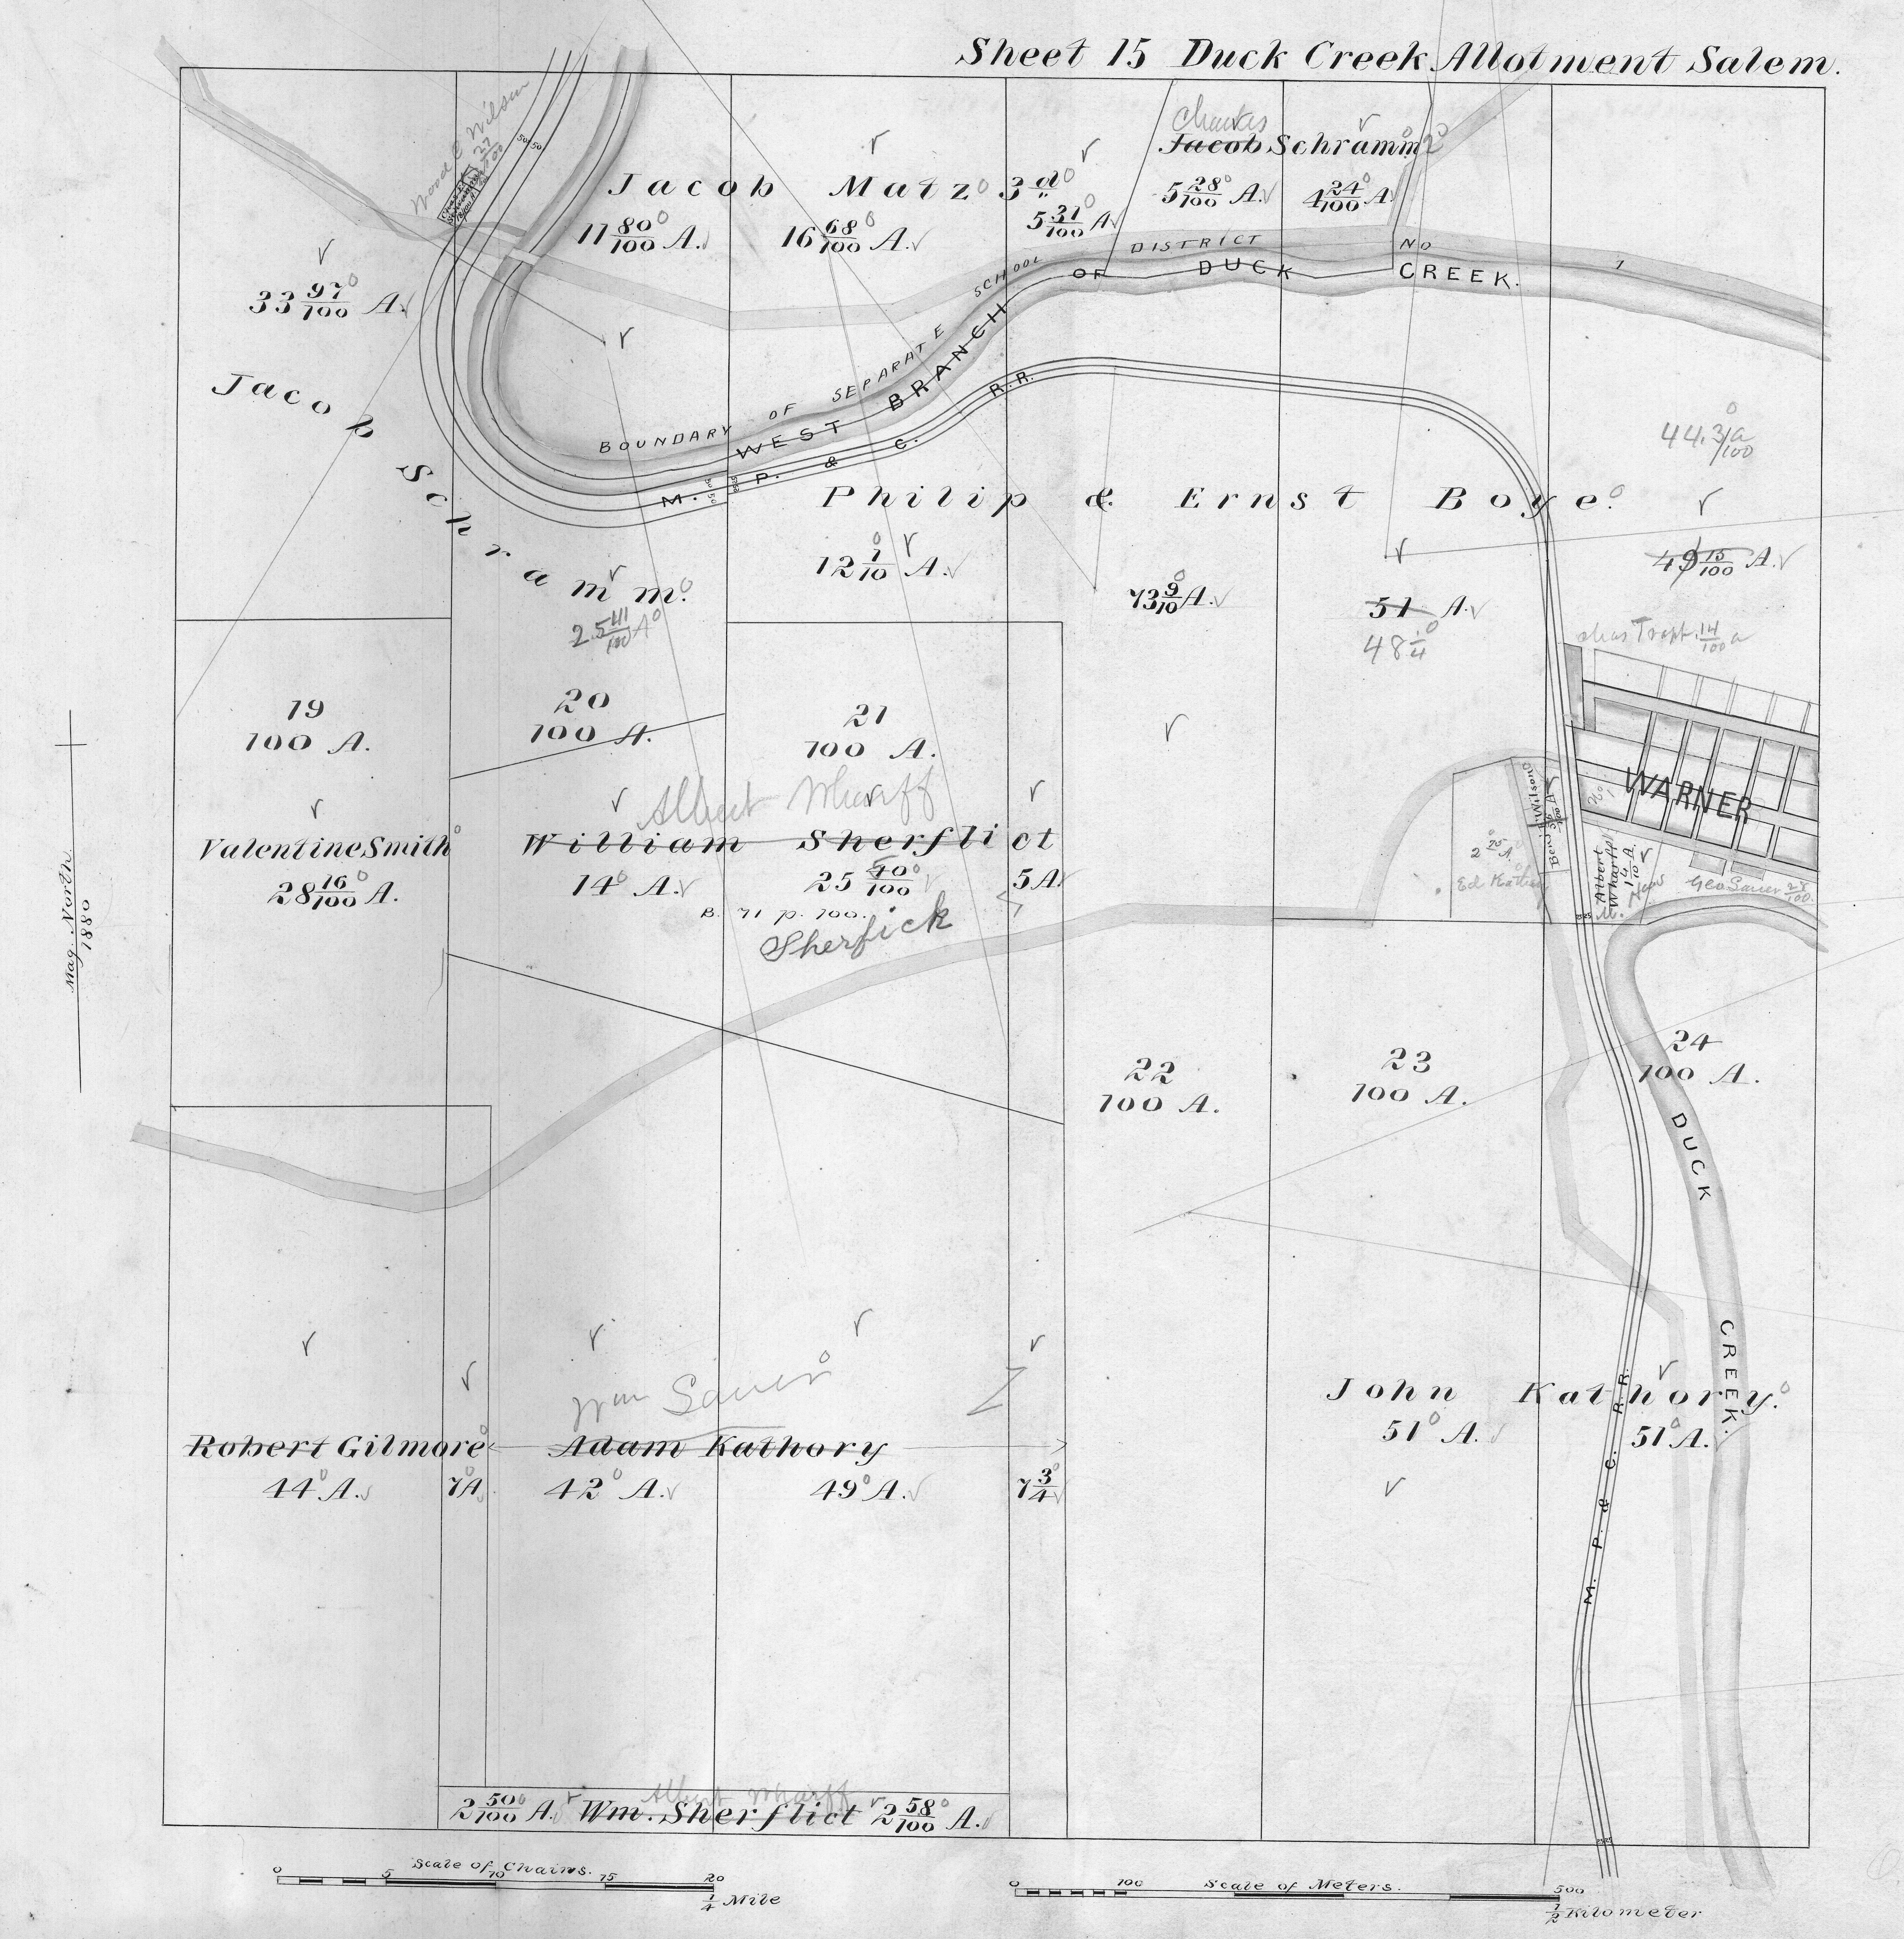 Sheet 15 Duck Creek Allotment Salem.
Wood C Wilson
27
100
50 50
Jacob Matz 3d
11 80/100 A.
16 68/100 A.
5 31/100 A
Charles
Jacob Schramm
5 28/100 A.
4 24/100 A
33 97/100 A.
BOUNDARY OF SEPARATE SCHOOL DISTRICT NO 1
WEST BRANCH OF DUCK CREEK.
M. P. & C. R.R.
Jacob Schramm.
25 41/100 A
Philip & Ernst Boye.
12 1/10 A.
73 9/10 A.
51 A.
48 1/4
44.31/100 a
49 15/100 A.
Chas Tropf. 14/100 a
19
100 A.
20
100 A.
21
100 A.
WARNER
Benj. Wilson
2 75/100 A.
Ed Kathory
Albert Wharff
Geo Sauer 25/100
Albert Wharff
Valentine Smith
28 16/100 A.
William Sherflict
14 A.
25 40/100
5 A.
B. 71 p. 700.
Sherfick
Mag. North.
1880
22
100 A.
23
100 A.
24
100 A.
DUCK CREEK.
Wm Sauer
Robert Gilmore
44 A.
7 A.
Adam Kathory
42 A.
49 A.
7 3/4
John Kathory.
51 A.
51 A.
M. P. & C. R.R.
Albert Wharff
2 50/100 A. Wm. Sherflict 2 58/100 A.
Scale of Chains.
0 5 10 15 20
1/4 Mile
Scale of Meters.
0 100 500
1/2 Kilometer